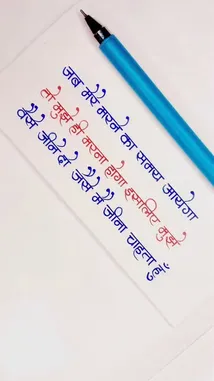 जब मेरे मरने का समय आयेगा
तो मुझे ही मरना होगा इसलिए मुझे
वैसे जीने दो जैसे मैं जीना चाहता